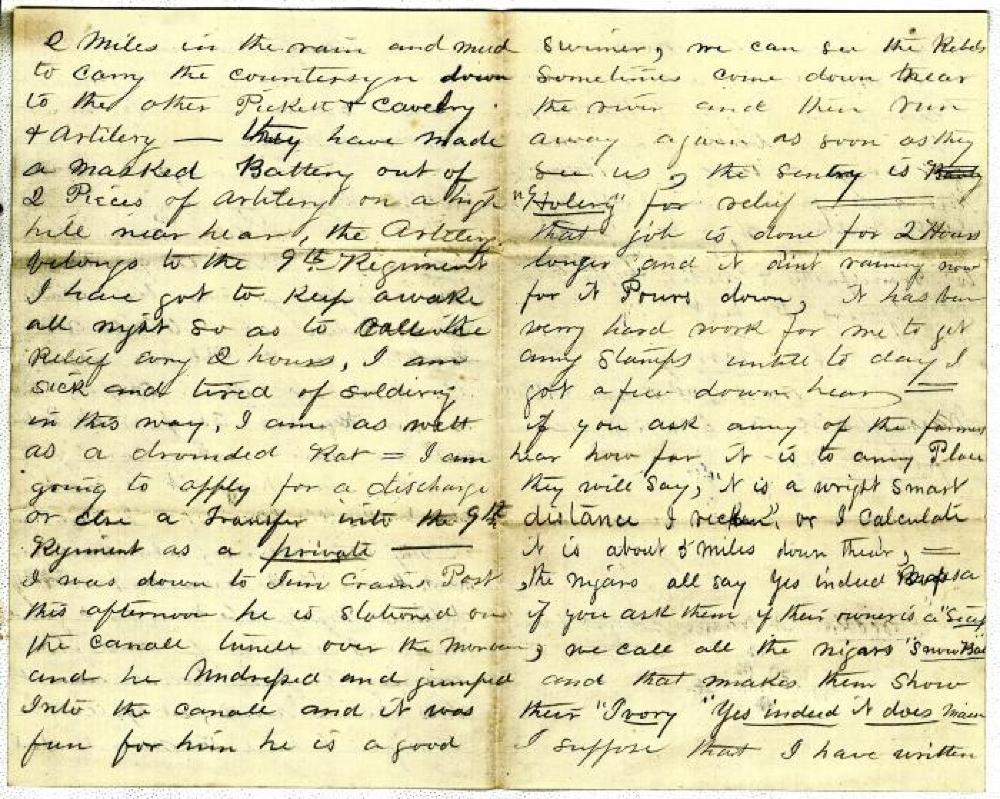 2 Miles in the rain and mud
to carry the countersign down
to the other Pickett & Cavelry
& Artilery — they have made
a masked Battery out of
2 Pieces of Artilery on a high
hill near hear, the Artilery
belongs to the 9th Regiment
I have got to keep awake
all night so as to call the
Relief evry 2 hours, I am
sick and tired of soldiring
in this way, I am as wett
as a drownded Rat = I am
going to apply for a discharge
or else a transfer into the 9th
Regiment as a private —
I was down to Jim Crains Post
this afternoon he is stationed on
the canall tunele over the
and he Undressed and jumped
Into the canall and it was
fun for him he is a good
swimer, we can see the Rebels
sometimes come down thear
the river and then run
away again as soon as they
see us, the sentry is
"Holering" for relief —
that job is done for 2 Hours
longer and it aint raining now
for it Pours down, It has ben
verry hard work for me to get
anny stamps untill to day I
got a few down hear —
if you ask anny of the farmers
hear how far it is to anny Place
they will say, "it is a wright smart
distance I recken", or I calculate
it is about 5 miles down thear, =
, the nigars all say Yes indeed Massa
if you ask them if their owner is a "Secesh
, we call all the nigars "Snow Ball
and that makes them show
their "Ivory "Yes indeed it does
I suppose that I have written